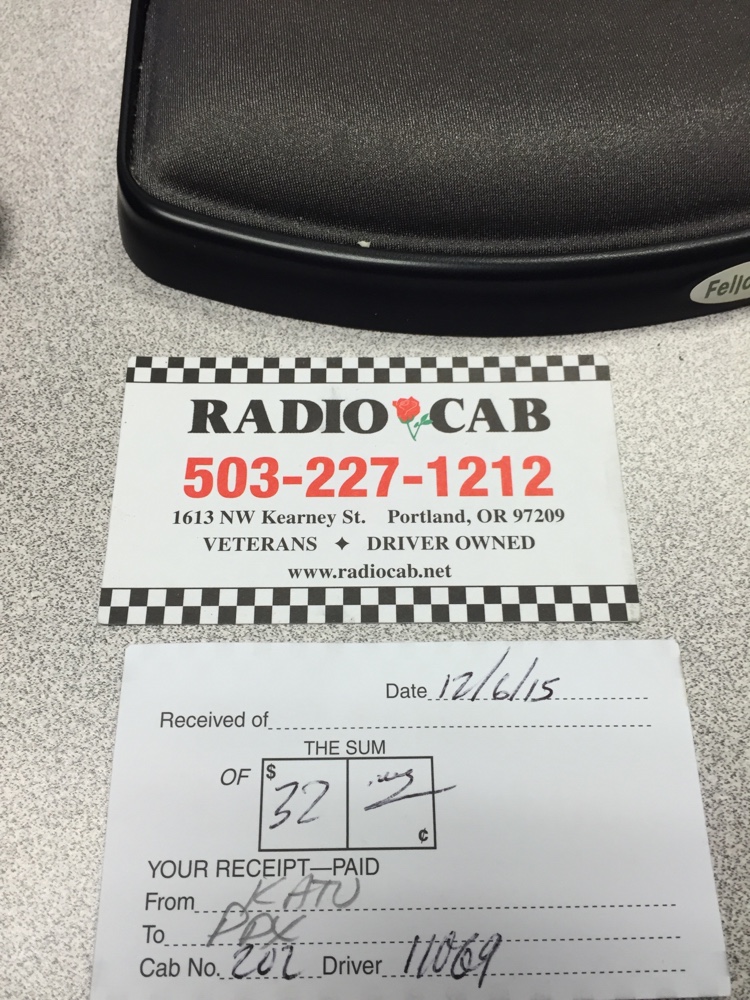 RADIO CAB
503-227-1212
1613 NW Kearney St. Portland, OR 97209
VETERANS ✦ DRIVER OWNED
www.radiocab.net
Date 12/6/15
Received of
THE SUM
OF $ 32 ¢
YOUR RECEIPT—PAID
From KATU
To PDX
Cab No. 202 Driver 11069